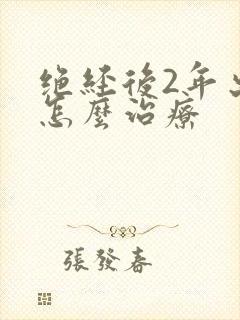 絕經後2年
怎麼治療
張發春